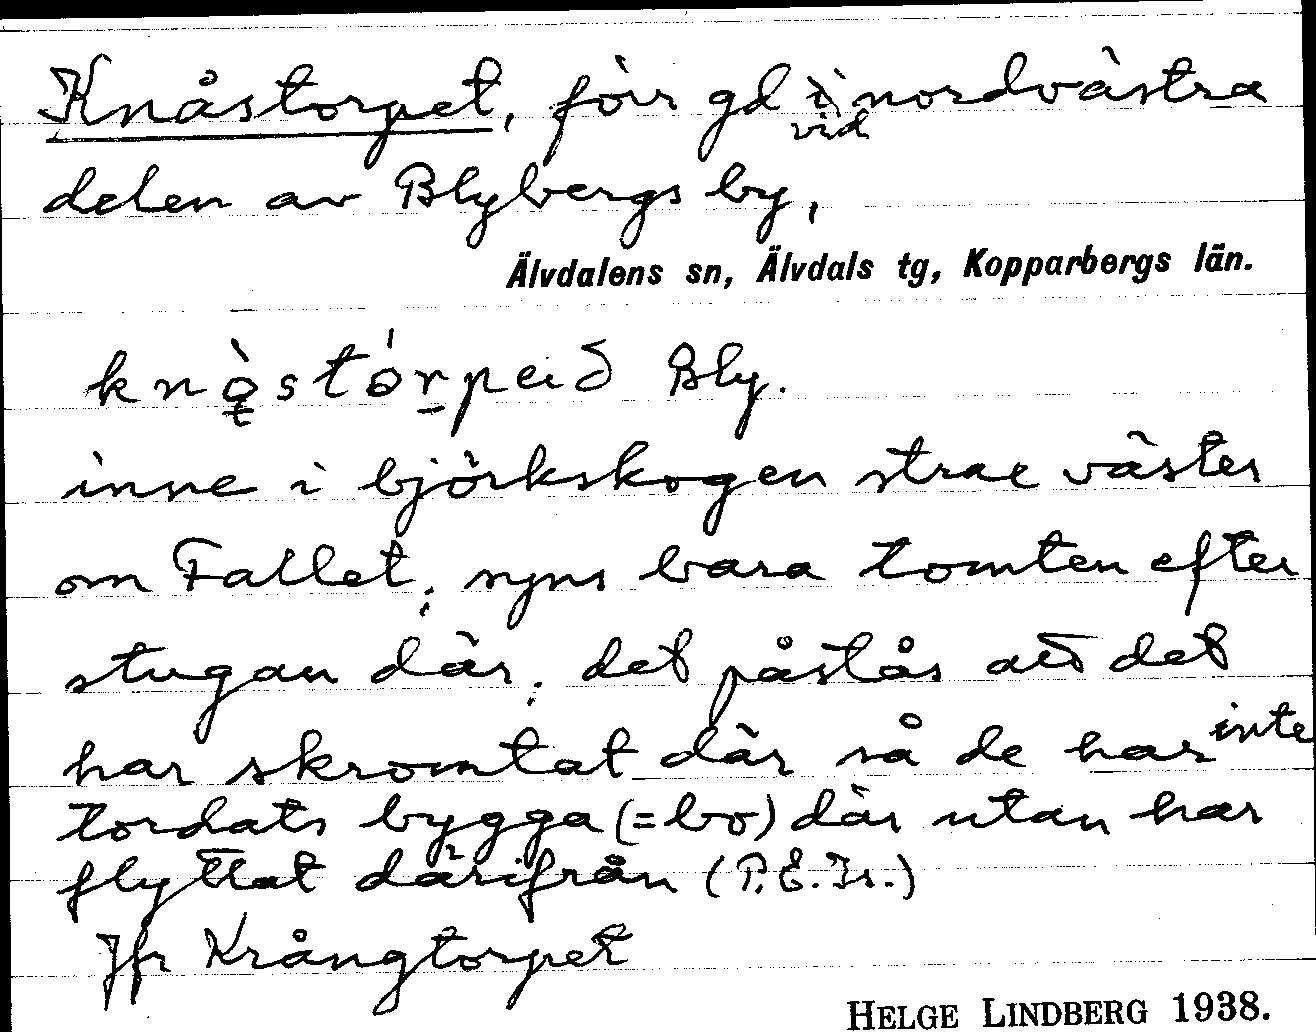 Knåstorpet, förr gd i nordvästra
vid
delen av Blybergs by,
Älvdalens sn, Älvdals tg, Kopparbergs län.
Bly.
inne i björkskogen strax väster
om Fallet; syns bara tomten efter
stugan där; det påstås att det
har skromtat där så de har inte
tordats bygga (= bo) där utan har
flyttat därifrån (P.E. Is.)
Jfr Krångtorpet
HELGE LINDBERG 1938.